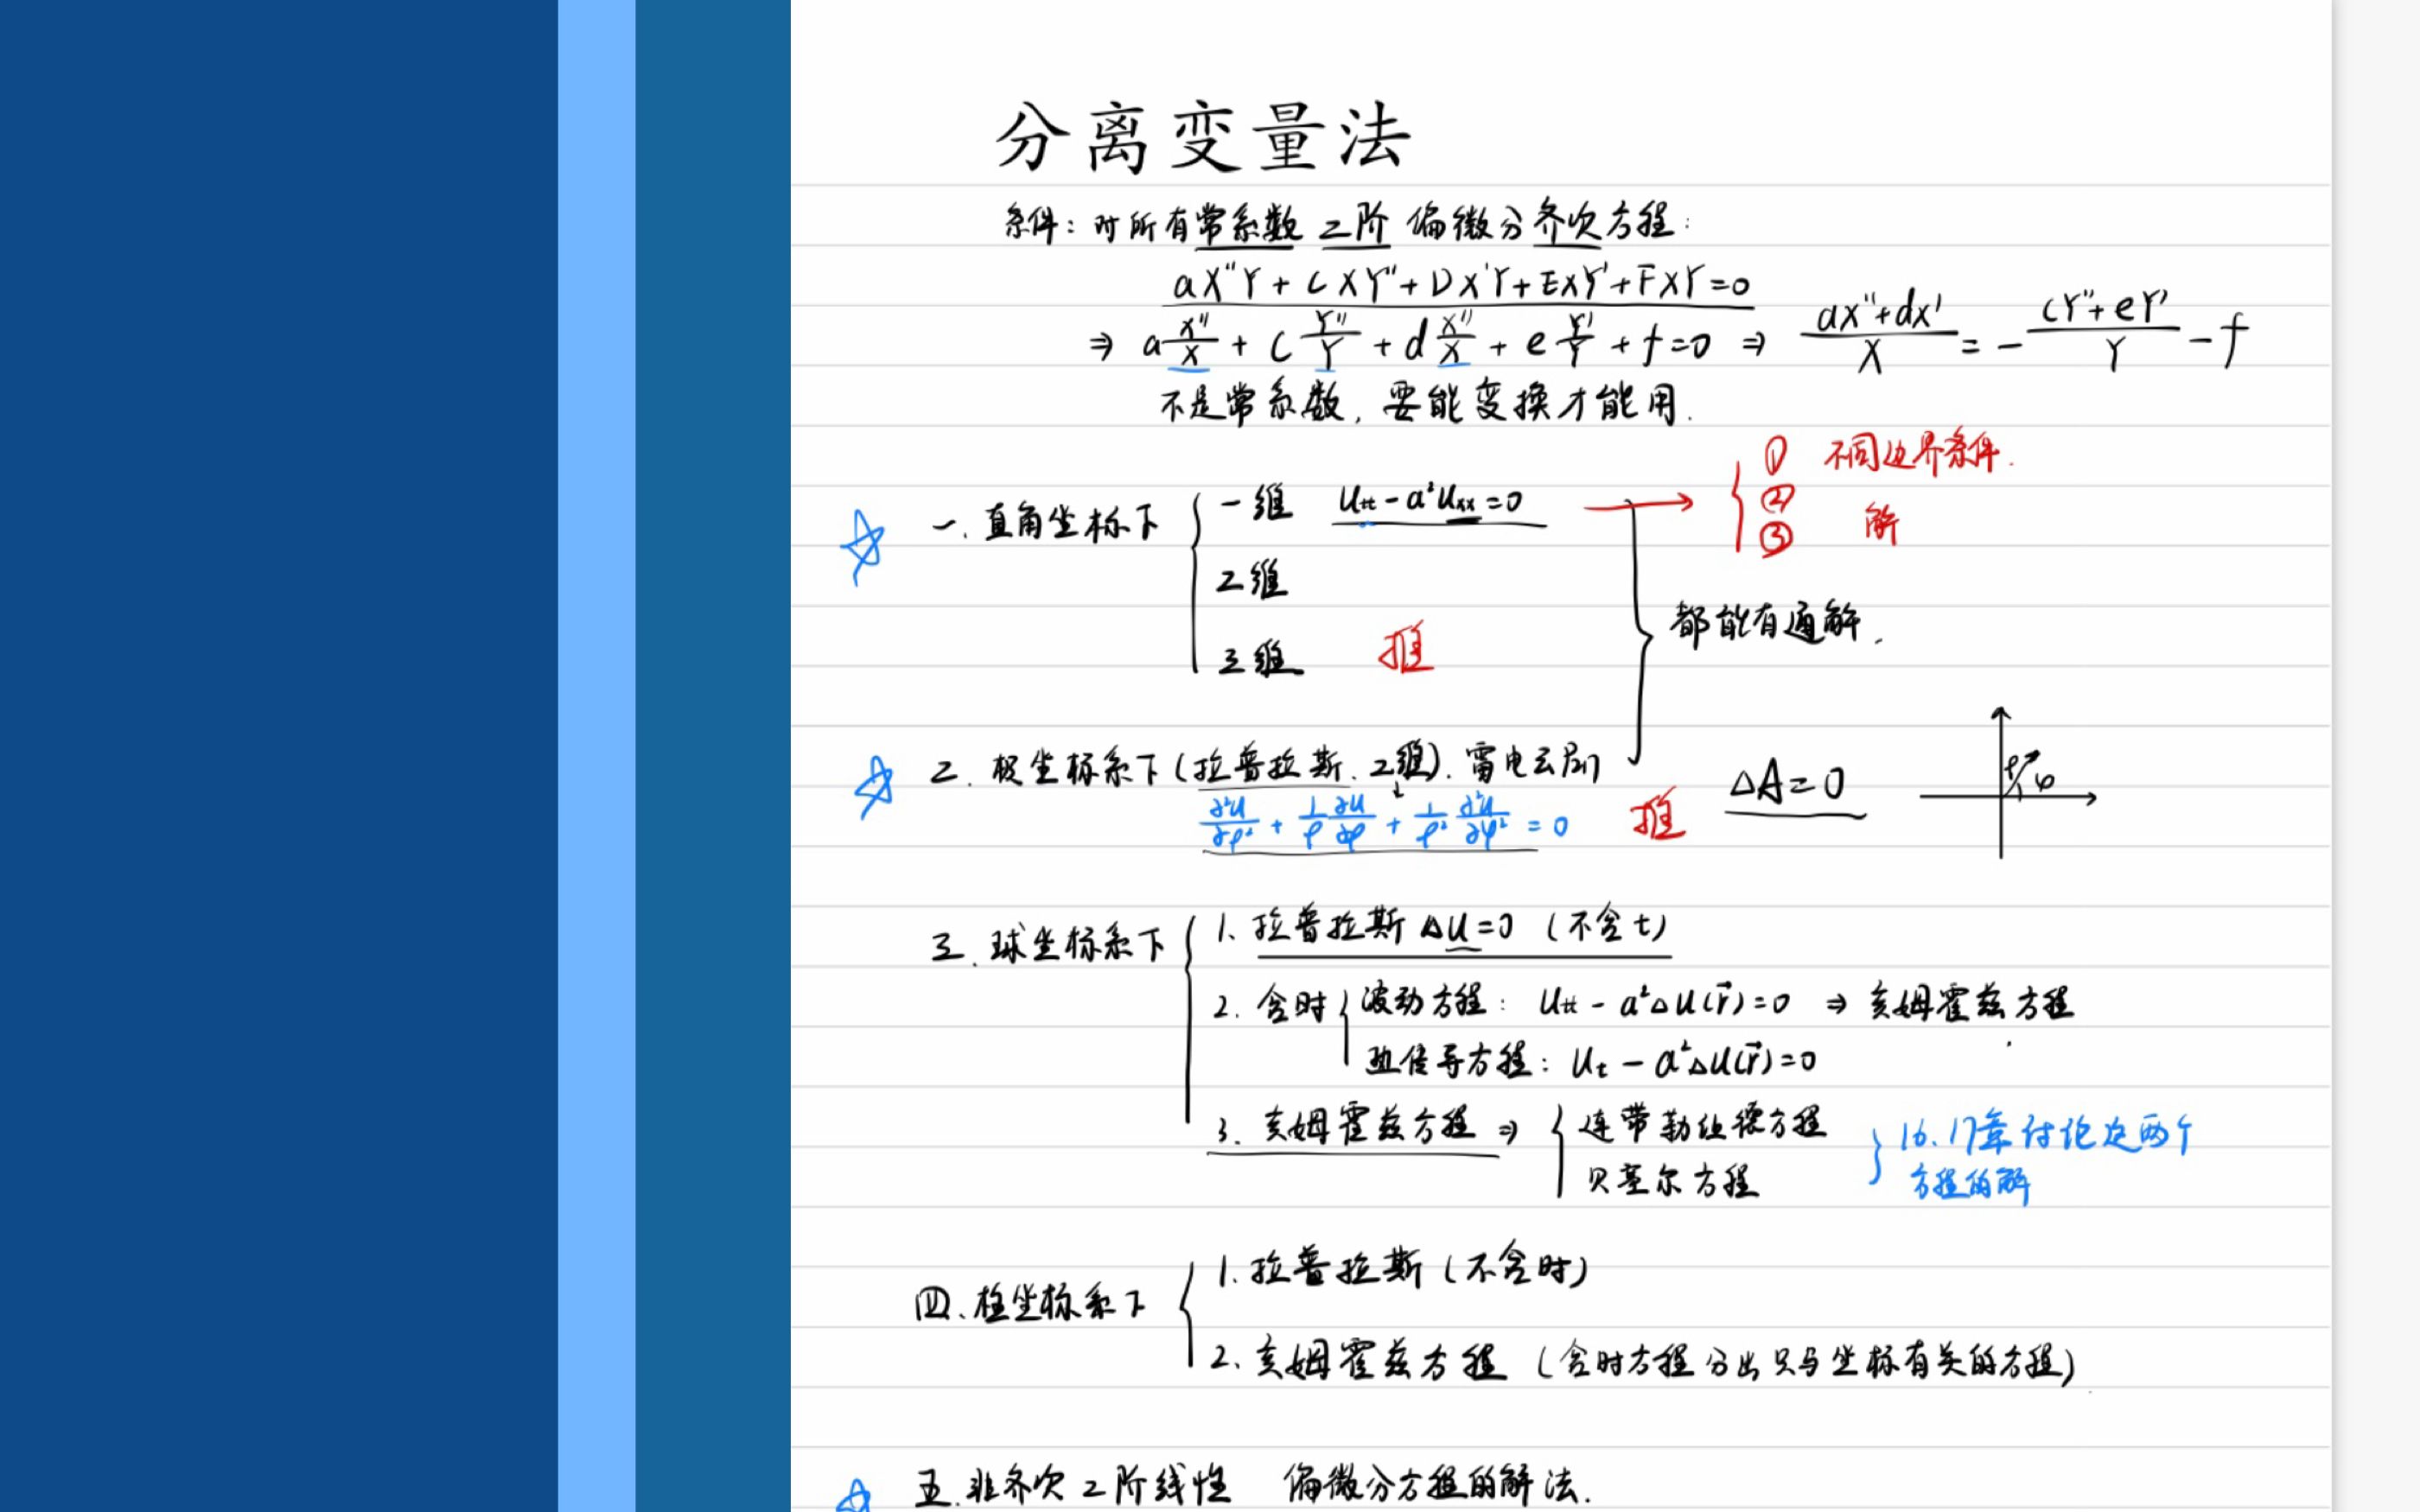 分离变量法
条件：对所有常系数 二阶 偏微分齐次方程：
aX''Y + CXY'' + DX'Y + EXY' + FXY = 0
⇒ a X''/X + C Y''/Y + d X''/X + e Y'/Y + f = 0 ⇒ (aX''+dX')/X = - (CY''+eY')/Y - f
不是常系数，要能变换才能用．
① 不同边界条件．
②
③ 解
一、直角坐标下
一维 Utt - a²Uxx = 0
2维
三维 推
都能有通解．
二．极坐标系下（拉普拉斯．2维）．雷电云层
∂²u/∂ρ² + 1/ρ ∂u/∂ρ + 1/ρ² ∂²u/∂φ² = 0 推 ΔA = 0
ρ φ
三．球坐标系下
1、拉普拉斯 Δu = 0 （不含t）
2. 含时
波动方程： Utt - a²Δu(r⃗) = 0 ⇒ 亥姆霍兹方程
热传导方程： Ut - a²Δu(r⃗) = 0
3. 亥姆霍兹方程 ⇒
连带勒让德方程
贝塞尔方程
16.17章讨论这两个
方程的解
四、柱坐标系下
1. 拉普拉斯（不含时）
2、亥姆霍兹方程 （含时方程分出只与坐标有关的方程）
五．非齐次2阶线性 偏微分方程的解法．